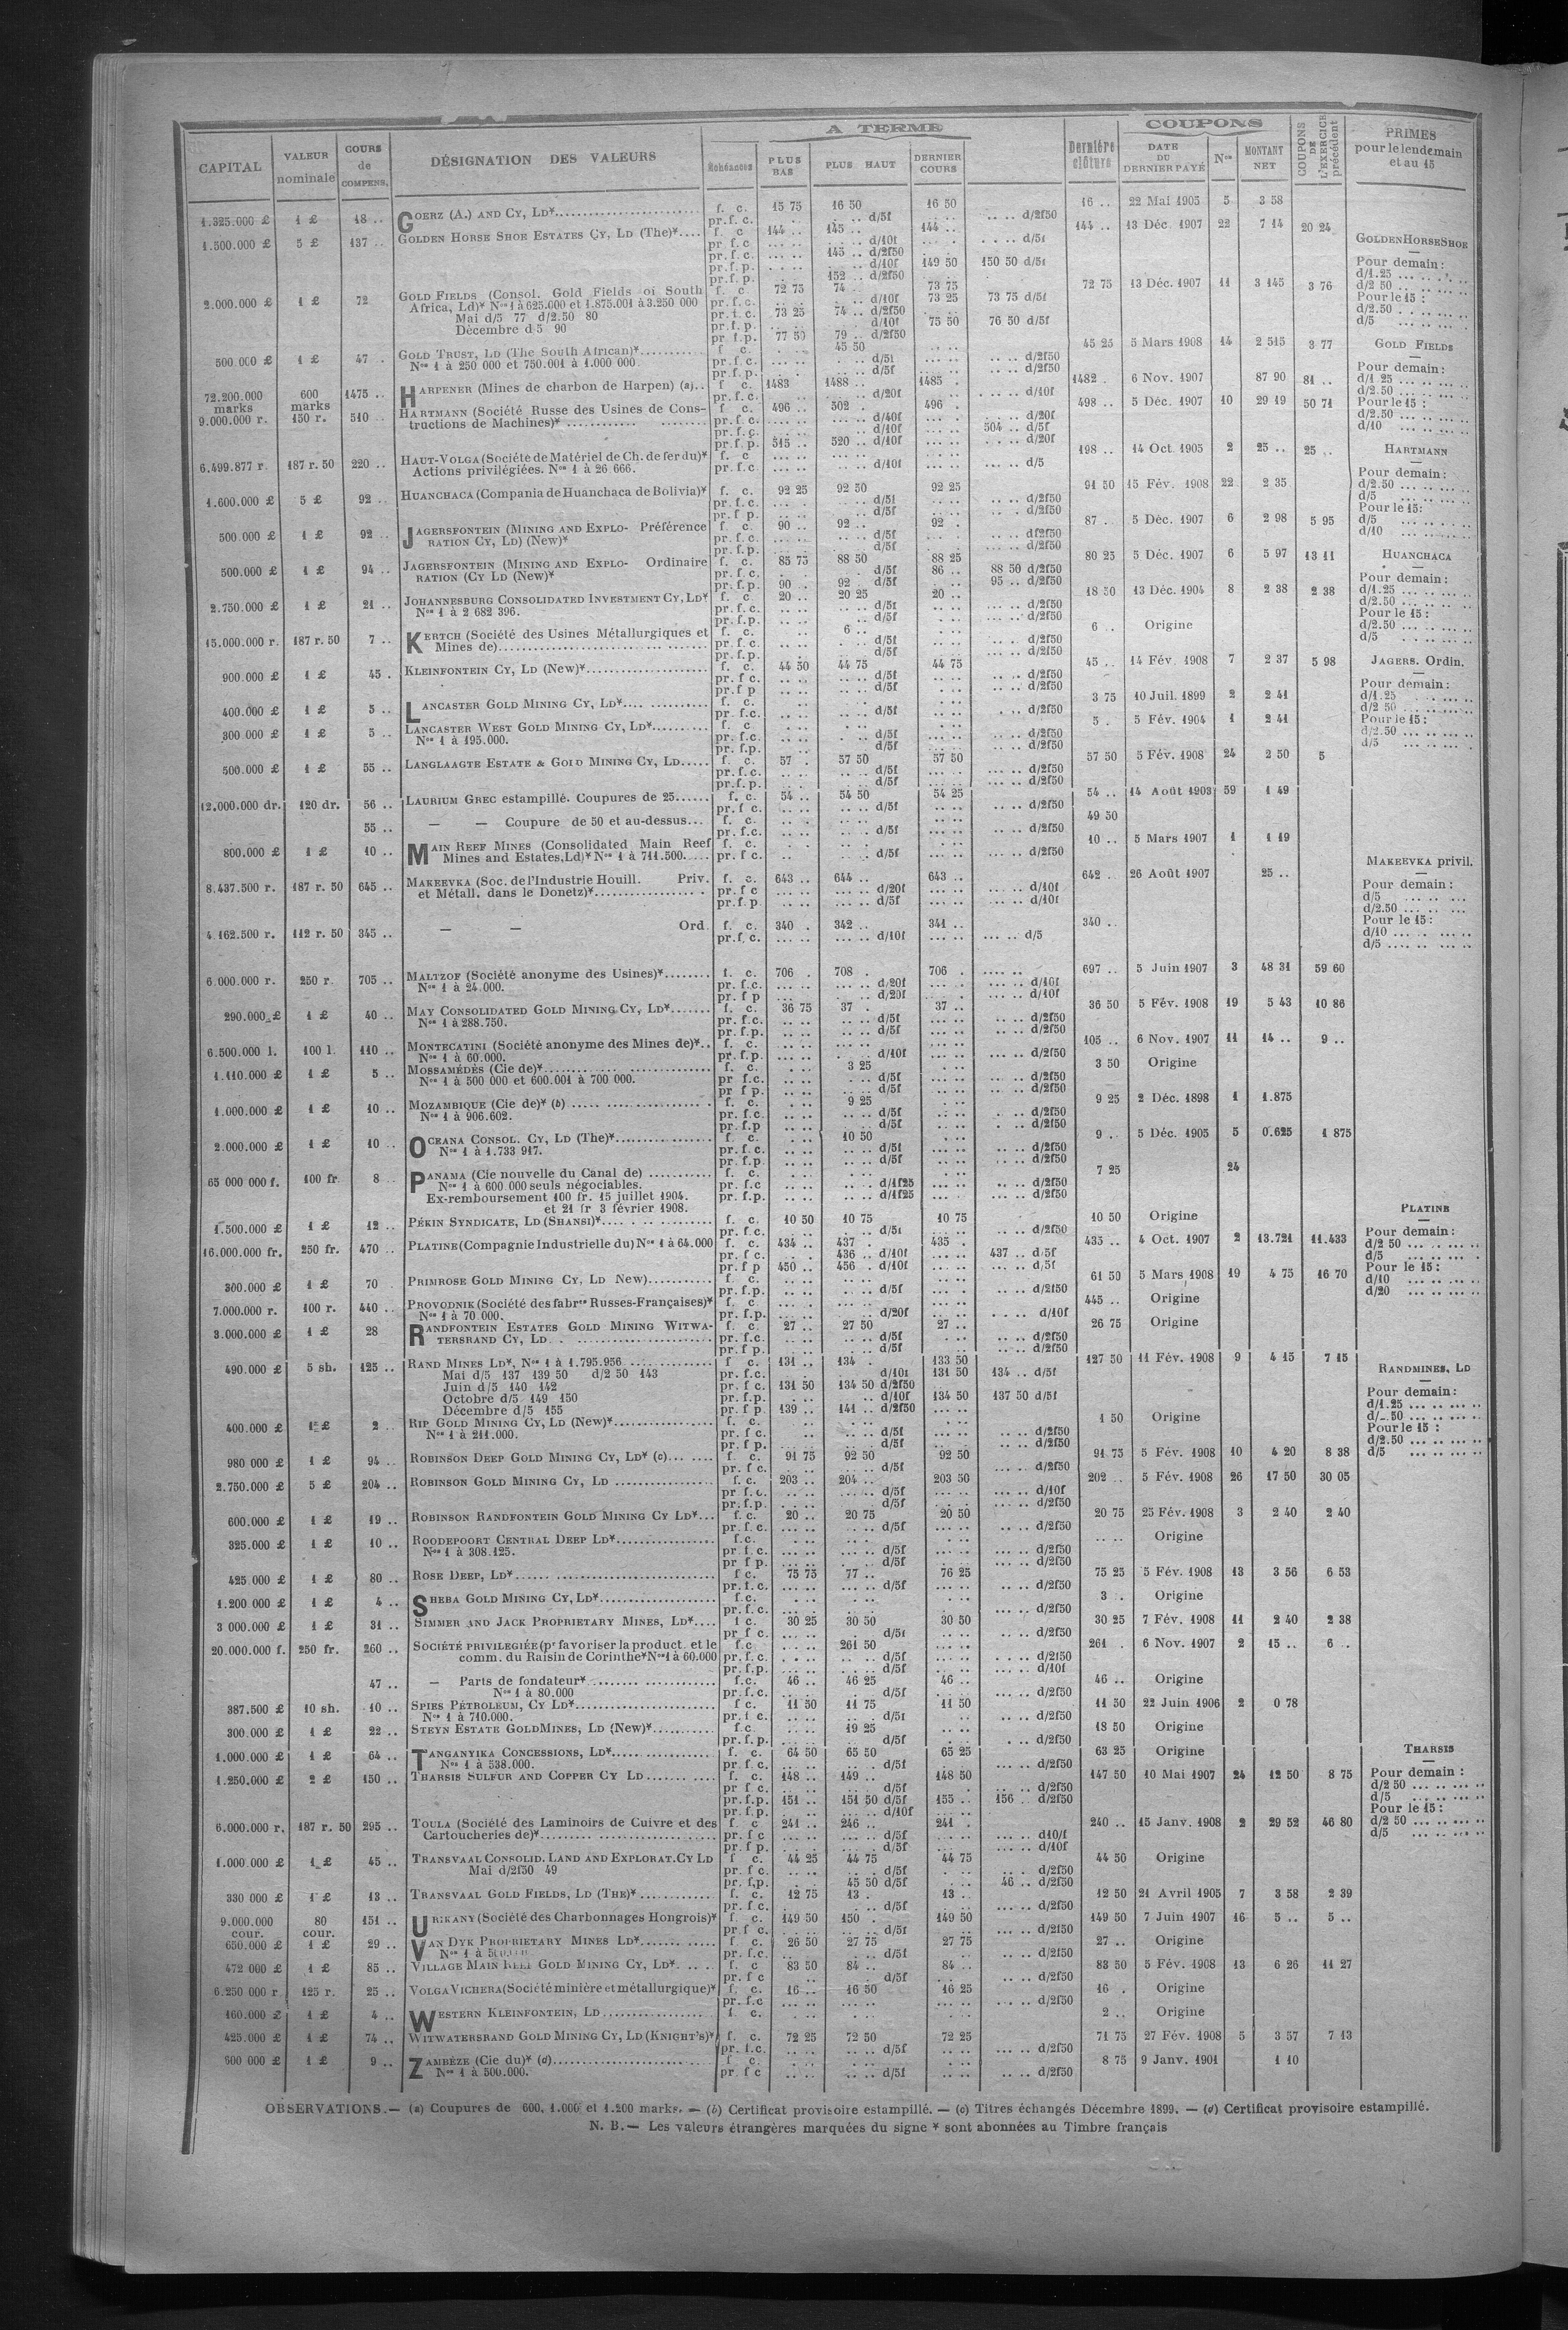 A TERME
COUPONS
CAPITAL VALEUR nominale COURS de COMPENS. DÉSIGNATION DES VALEURS Échéances PLUS BAS PLUS HAUT DERNIER COURS Dernière clôture DATE DU DERNIER PAYÉ Nos MONTANT NET COUPONS DE L'EXERCICE précédent PRIMES pour le lendemain et au 15
1.325.000 £ 1 £ 18 .. GOERZ (A.) AND CY, LD* f. c. 15 75 16 50 16 50 16 .. 22 Mai 1905 5 3 58
pr. f. c. d/5f d/2f50
1.500.000 £ 5 £ 137 .. GOLDEN HORSE SHOE ESTATES CY, LD (The)* f. c. 144 .. 145 .. 144 .. 144 .. 13 Déc. 1907 22 7 14 20 24
pr. f. c. d/10f d/5f
pr. f. c. 145 .. d/2f50
pr. f. p. d/10f 149 50 150 50 d/5f
pr. f. p. 152 .. d/2f50
2.000.000 £ 1 £ 72 GOLD FIELDS (Consol. Gold Fields of South f. c. 72 75 74 . 73 75 72 75 13 Déc. 1907 11 3 145 3 76
Africa, Ld)* Nos 1 à 625.000 et 1.875.001 à 3.250 000 pr. f. c. d/10f 73 25 73 75 d/5f
Mai d/5 77 d/2.50 80 pr. f. c. 73 25 74 .. d/2f50
Décembre d 5 90 pr. f. p. d/10f 75 50 76 50 d/5f
pr. f. p. 77 50 79 . d/2f50
500.000 £ 1 £ 47 . GOLD TRUST, LD (The South African)* f. c. 45 50 45 25 5 Mars 1908 14 2 515 3 77
Nos 1 à 250 000 et 750.001 à 1.000 000 pr. f. c. d/5f d/2f50
pr. f. p. d/5f d/2f50
72.200.000 marks 600 marks 1475 .. HARPENER (Mines de charbon de Harpen) (a) f. c. 1483 1488 .. 1485 . 1482 . 6 Nov. 1907 87 90 81 ..
pr. f. c. d/20f d/10f
9.000.000 r. 150 r. 510 .. HARTMANN (Société Russe des Usines de Cons- f. c. 496 .. 502 . 496 . 498 .. 5 Déc. 1907 10 29 19 50 71
tructions de Machines)* pr. f. c. d/40f d/20f
pr. f. c. d/10f 504 .. d/5f
pr. f. p. 515 .. 520 .. d/10f d/20f
6.499.877 r. 187 r. 50 220 .. HAUT-VOLGA (Société de Matériel de Ch. de fer du)* f. c. 198 .. 14 Oct. 1905 2 25 .. 25 ..
Actions privilégiées. Nos 1 à 26 666. pr. f. c. d/10f d/5
1.600.000 £ 5 £ 92 .. HUANCHACA (Compania de Huanchaca de Bolivia)* f. c. 92 25 92 50 92 25 91 50 15 Fév. 1908 22 2 35
pr. f. c. d/5f d/2f50
pr. f. p. d/5f d/2f50
500.000 £ 1 £ 92 .. JAGERSFONTEIN (MINING AND EXPLO- Préférence f. c. 90 .. 92 .. 92 . 87 . 5 Déc. 1907 6 2 98 5 95
RATION CY, LD) (New)* pr. f. c. d/5f d/2f50
pr. f. p. d/5f d/2f50
500.000 £ 1 £ 94 .. JAGERSFONTEIN (MINING AND EXPLO- Ordinaire f. c. 85 75 88 50 88 25 80 25 5 Déc. 1907 6 5 97 13 11
RATION (CY LD (New)* pr. f. c. d/5f 86 .. 88 50 d/2f50
pr. f. p. 90 .. 92 . d/5f 95 .. d/2f50
2.750.000 £ 1 £ 21 .. JOHANNESBURG CONSOLIDATED INVESTMENT CY, LD* f. c. 20 .. 20 25 20 .. 18 50 13 Déc. 1904 8 2 38 2 38
Nos 1 à 2 682 396. pr. f. c. d/5f d/2f50
pr. f. p. d/5f d/2f50
15.000.000 r. 187 r. 50 7 .. KERTCH (Société des Usines Métallurgiques et f. c. 6 .. 6 .. Origine
Mines de) pr. f. c. d/5f d/2f50
pr. f. p. d/5f d/2f50
900.000 £ 1 £ 45 . KLEINFONTEIN CY, LD (New)* f. c. 44 50 44 75 44 75 45 .. 14 Fév. 1908 7 2 37 5 98
pr. f. c. d/5f d/2f50
pr. f. p. d/5f d/2f50
400.000 £ 1 £ 5 .. LANCASTER GOLD MINING CY, LD* f. c. 3 75 10 Juil. 1899 2 2 41
pr. f. c. d/5f d/2f50
300 000 £ 1 £ 5 .. LANCASTER WEST GOLD MINING CY, LD* f. c. 5 . 5 Fév. 1904 1 2 41
Nos 1 à 195.000. pr. f. c. d/5f d/2f50
pr. f. p. d/5f d/2f50
500.000 £ 1 £ 55 .. LANGLAAGTE ESTATE & GOLD MINING CY, LD f. c. 57 . 57 50 57 50 57 50 5 Fév. 1908 24 2 50 5
pr. f. c. d/5f d/2f50
pr. f. p. d/5f d/2f50
12.000.000 dr. 120 dr. 56 .. LAURIUM GREC estampillé. Coupures de 25 f. c. 54 .. 54 50 54 25 54 .. 14 Août 1903 59 1 49
pr. f. c. d/5f d/2f50
55 .. — — Coupure de 50 et au-dessus f. c. 49 50
pr. f. c. d/5f d/2f50
800.000 £ 1 £ 10 .. MAIN REEF MINES (Consolidated Main Reef f. c. 10 .. 5 Mars 1907 1 1 19
Mines and Estates, Ld)* Nos 1 à 711.500 pr. f. c. d/5f d/2f50
8.437.500 r. 187 r. 50 645 .. MAKEEVKA (Soc. de l'Industrie Houill. Priv. f. c. 643 .. 644 .. 643 .. 642 .. 26 Août 1907 25 ..
et Métall. dans le Donetz)* pr. f. c. d/20f d/10f
pr. f. p. d/5f d/10f
4.162.500 r. 112 r. 50 345 .. — — Ord. f. c. 340 . 342 .. 341 .. 340 ..
pr. f. c. d/10f d/5
6.000.000 r. 250 r. 705 .. MALTZOF (Société anonyme des Usines)* f. c. 706 . 708 . 706 . 697 .. 5 Juin 1907 3 48 31 59 60
Nos 1 à 24.000. pr. f. c. d/20f d/10f
pr. f. p. d/20f d/10f
290.000 £ 1 £ 40 .. MAY CONSOLIDATED GOLD MINING CY, LD* f. c. 36 75 37 . 37 .. 36 50 5 Fév. 1908 19 5 43 10 86
Nos 1 à 288.750. pr. f. c. d/5f d/2f50
pr. f. p. d/5f d/2f50
6.500.000 l. 100 l. 110 .. MONTECATINI (Société anonyme des Mines de)* f. c. 105 .. 6 Nov. 1907 11 14 .. 9 ..
Nos 1 à 60.000. pr. f. p. d/10f d/2f50
1.110.000 £ 1 £ 5 .. MOSSAMÉDÈS (Cie de)* f. c. 3 25 3 50 Origine
Nos 1 à 500 000 et 600.001 à 700 000. pr. f. c. d/5f d/2f50
pr. f. p. d/5f d/2f50
1.000.000 £ 1 £ 10 .. MOZAMBIQUE (Cie de)* (b) f. c. 9 25 9 25 2 Déc. 1898 1 1.875
Nos 1 à 906.602. pr. f. c. d/5f d/2f50
pr. f. p. d/5f d/2f50
2.000.000 £ 1 £ 10 .. OCEANA CONSOL. CY, LD (The)* f. c. 10 50 9 . 5 Déc. 1905 5 0.625 1 875
Nos 1 à 1.733 917. pr. f. c. d/5f d/2f50
pr. f. p. d/5f d/2f50
65 000 000 f. 100 fr. 8 .. PANAMA (Cie nouvelle du Canal de) f. c. 7 25 24
Nos 1 à 600.000 seuls négociables. pr. f. c. d/1f25 d/2f50
Ex-remboursement 100 fr. 15 juillet 1904. pr. f. p. d/1f25 d/2f50
et 21 fr 3 février 1908.
1.500.000 £ 1 £ 12 .. PÉKIN SYNDICATE, LD (SHANSI)* f. c. 10 50 10 75 10 75 10 50 Origine
pr. f. c. d/5f d/2f50
16.000.000 fr. 250 fr. 470 .. PLATINE (Compagnie Industrielle du) Nos 1 à 64.000 f. c. 434 .. 437 . 435 . 435 .. 4 Oct. 1907 2 13.721 11.433
pr. f. c. 436 .. d/10f 437 .. d/5f
pr. f. p. 450 .. 456 . d/10f d/5f
300.000 £ 1 £ 70 PRIMROSE GOLD MINING CY, LD New) f. c. 61 50 5 Mars 1908 19 4 75 16 70
pr. f. p. d/5f d/2f50
7.000.000 r. 100 r. 440 .. PROVODNIK (Société des fabres Russes-Françaises)* f. c. 445 .. Origine
Nos 1 à 70.000. pr. f. p. d/20f d/10f
3.000.000 £ 1 £ 28 RANDFONTEIN ESTATES GOLD MINING WITWA- f. c. 27 .. 27 50 27 .. 26 75 Origine
TERSRAND CY, LD pr. f. c. d/5f d/2f50
pr. f. p. d/5f d/2f50
490.000 £ 5 sh. 125 .. RAND MINES LD*, Nos 1 à 1.795.956 f. c. 131 .. 134 . 133 50 127 50 11 Fév. 1908 9 4 15 7 15
Mai d/5 137 139 50 d/2 50 143 pr. f. c. d/10f 131 50 134 .. d/5f
Juin d/5 140 142 pr. f. c. 131 50 134 50 d/2f50
Octobre d/5 149 150 pr. f. p. d/10f 134 50 137 50 d/5f
Décembre d/5 155 pr. f. p. 139 .. 141 .. d/2f50
400.000 £ 1 £ 2 .. RIP GOLD MINING CY, LD (New)* f. c. 1 50 Origine
Nos 1 à 211.000. pr. f. c. d/5f d/2f50
pr. f. p. d/5f d/2f50
980 000 £ 1 £ 94 .. ROBINSON DEEP GOLD MINING CY, LD* (c) f. c. 91 75 92 50 92 50 91 75 5 Fév. 1908 10 4 20 8 38
pr. f. c. d/5f d/2f50
2.750.000 £ 5 £ 204 .. ROBINSON GOLD MINING CY, LD f. c. 203 .. 204 .. 203 50 202 .. 5 Fév. 1908 26 17 50 30 05
pr. f. c. d/5f d/10f
pr. f. p. d/5f d/2f50
600.000 £ 1 £ 19 .. ROBINSON RANDFONTEIN GOLD MINING CY LD* f. c. 20 .. 20 75 20 50 20 75 25 Fév. 1908 3 2 40 2 40
pr. f. c. d/5f d/2f50
325.000 £ 1 £ 10 .. ROODEPOORT CENTRAL DEEP LD* f. c. Origine
Nos 1 à 308.125. pr. f. c. d/5f d/2f50
pr. f. p. d/5f d/2f50
425 000 £ 1 £ 80 .. ROSE DEEP, LD* f. c. 75 75 77 .. 76 25 75 25 5 Fév. 1908 13 3 56 6 53
pr. f. c. d/5f d/2f50
1.200 000 £ 1 £ 4 .. SHEBA GOLD MINING CY, LD* f. c. 3 . Origine
pr. f. c. d/2f50
3 000.000 £ 1 £ 31 .. SIMMER AND JACK PROPRIETARY MINES, LD* f. c. 30 25 30 50 30 50 30 25 7 Fév. 1908 11 2 40 2 38
pr. f. c. d/5f d/2f50
20.000.000 f. 250 fr. 260 .. SOCIÉTÉ PRIVILEGIÉE (pr favoriser la product. et le f. c. 261 50 261 . 6 Nov. 1907 2 15 .. 6 ..
comm. du Raisin de Corinthe* Nos 1 à 60.000 pr. f. c. d/5f d/2f50
pr. f. p. d/5f d/10f
47 .. — Parts de fondateur* f. c. 46 .. 46 25 46 .. 46 .. Origine
Nos 1 à 80.000 pr. f. c. d/5f d/2f50
387.500 £ 10 sh. 10 .. SPIES PÉTROLEUM, CY LD* f. c. 11 50 11 75 11 50 11 50 22 Juin 1906 2 0 78
Nos 1 à 710.000. pr. f. c. d/5f d/2f50
300.000 £ 1 £ 22 .. STEYN ESTATE GOLDMINES, LD (New)* f. c. 19 25 18 50 Origine
pr. f. p. d/5f d/2f50
1.000.000 £ 1 £ 64 .. TANGANYIKA CONCESSIONS, LD* f. c. 64 50 65 50 65 25 63 25 Origine
Nos 1 à 538.000. pr. f. c. d/5f d/2f50
1.250.000 £ 2 £ 150 .. THARSIS SULFUR AND COPPER CY LD f. c. 148 .. 149 .. 148 50 147 50 10 Mai 1907 24 12 50 8 75
pr. f. c. d/5f d/2f50
pr. f. p. 151 .. 151 50 d/5f 155 .. 156 . d/2f50
pr. f. p. d/10f
6.000.000 r. 187 r. 50 295 .. TOULA (Société des Laminoirs de Cuivre et des f. c. 241 .. 246 .. 241 . 240 .. 15 Janv. 1908 2 29 52 46 80
Cartoucheries de)* pr. f. c. d/5f d10/f
pr. f. p. d/5f d/10f
1.000.000 £ 1 £ 45 .. TRANSVAAL CONSOLID. LAND AND EXPLORAT. CY LD f. c. 44 25 44 75 44 75 44 50 Origine
Mai d/2f50 49 pr. f. c. d/5f d/2f50
pr. f. p. 45 50 d/5f 46 .. d/2f50
330 000 £ 1 £ 13 .. TRANSVAAL GOLD FIELDS, LD (THE)* f. c. 12 75 13 . 13 .. 12 50 21 Avril 1905 7 3 58 2 39
pr. f. c. d/5f d/2f50
9.000.000 cour. 80 cour. 151 .. URIKANY (Société des Charbonnages Hongrois)* f. c. 149 50 150 . 149 50 149 50 7 Juin 1907 16 5 .. 5 ..
pr. f. c. d/5f d/2f50
650.000 £ 1 £ 29 .. VAN DYK PROPRIETARY MINES LD* f. c. 26 50 27 75 27 75 27 .. Origine
Nos 1 à pr. f. c. d/5f d/2f50
472 000 £ 1 £ 85 .. VILLAGE MAIN REEF GOLD MINING CY, LD* f. c. 83 50 84 .. 84 .. 83 50 5 Fév. 1908 13 6 26 11 27
pr. f. c. d/5f d/2f50
6.250 000 r. 125 r. 25 .. VOLGA VICHERA (Société minière et métallurgique)* f. c. 16 .. 16 50 16 25 16 . Origine
pr. f. c. d/2f50
160.000 £ 1 £ 4 .. WESTERN KLEINFONTEIN, LD f. c. 2 .. Origine
425.000 £ 1 £ 74 .. WITWATERSRAND GOLD MINING CY, LD (KNIGHT'S)* f. c. 72 25 72 50 72 25 71 75 27 Fév. 1908 5 3 57 7 13
pr. f. c. d/5f d/2f50
600 000 £ 1 £ 9 .. ZAMBÈZE (Cie du)* (d) f. c. 8 75 9 Janv. 1901 1 10
Nos 1 à 500.000. pr. f. c. d/5f d/2f50
GOLDEN HORSE SHOE
Pour demain :
d/1.25
d/2 50
Pour le 15 :
d/2.50
d/5
GOLD FIELDS
Pour demain :
d/1 25
d/2.50
Pour le 15 :
d/2.50
d/10
HARTMANN
Pour demain :
d/2.50
d/5
Pour le 15 :
d/5
d/10
HUANCHACA
Pour demain :
d/1.25
d/2.50
Pour le 15 :
d/2.50
d/5
JAGERS. Ordin.
Pour demain :
d/1.25
d/2 50
Pour le 15 :
d/2.50
d/5
MAKEEVKA privil.
Pour demain :
d/5
d/2.50
Pour le 15 :
d/10
d/5
PLATINE
Pour demain :
d/2 50
d/5
Pour le 15 :
d/10
d/20
RANDMINES, LD
Pour demain :
d/1.25
d/_.50
Pour le 15 :
d/2.50
d/5
THARSIS
Pour demain :
d/2 50
d/5
Pour le 15 :
d/2 50
d/5
OBSERVATIONS.— (a) Coupures de 600, 1.000 et 1.200 marks. — (b) Certificat provisoire estampillé. — (c) Titres échangés Décembre 1899. — (d) Certificat provisoire estampillé.
N. B.— Les valeurs étrangères marquées du signe * sont abonnées au Timbre français